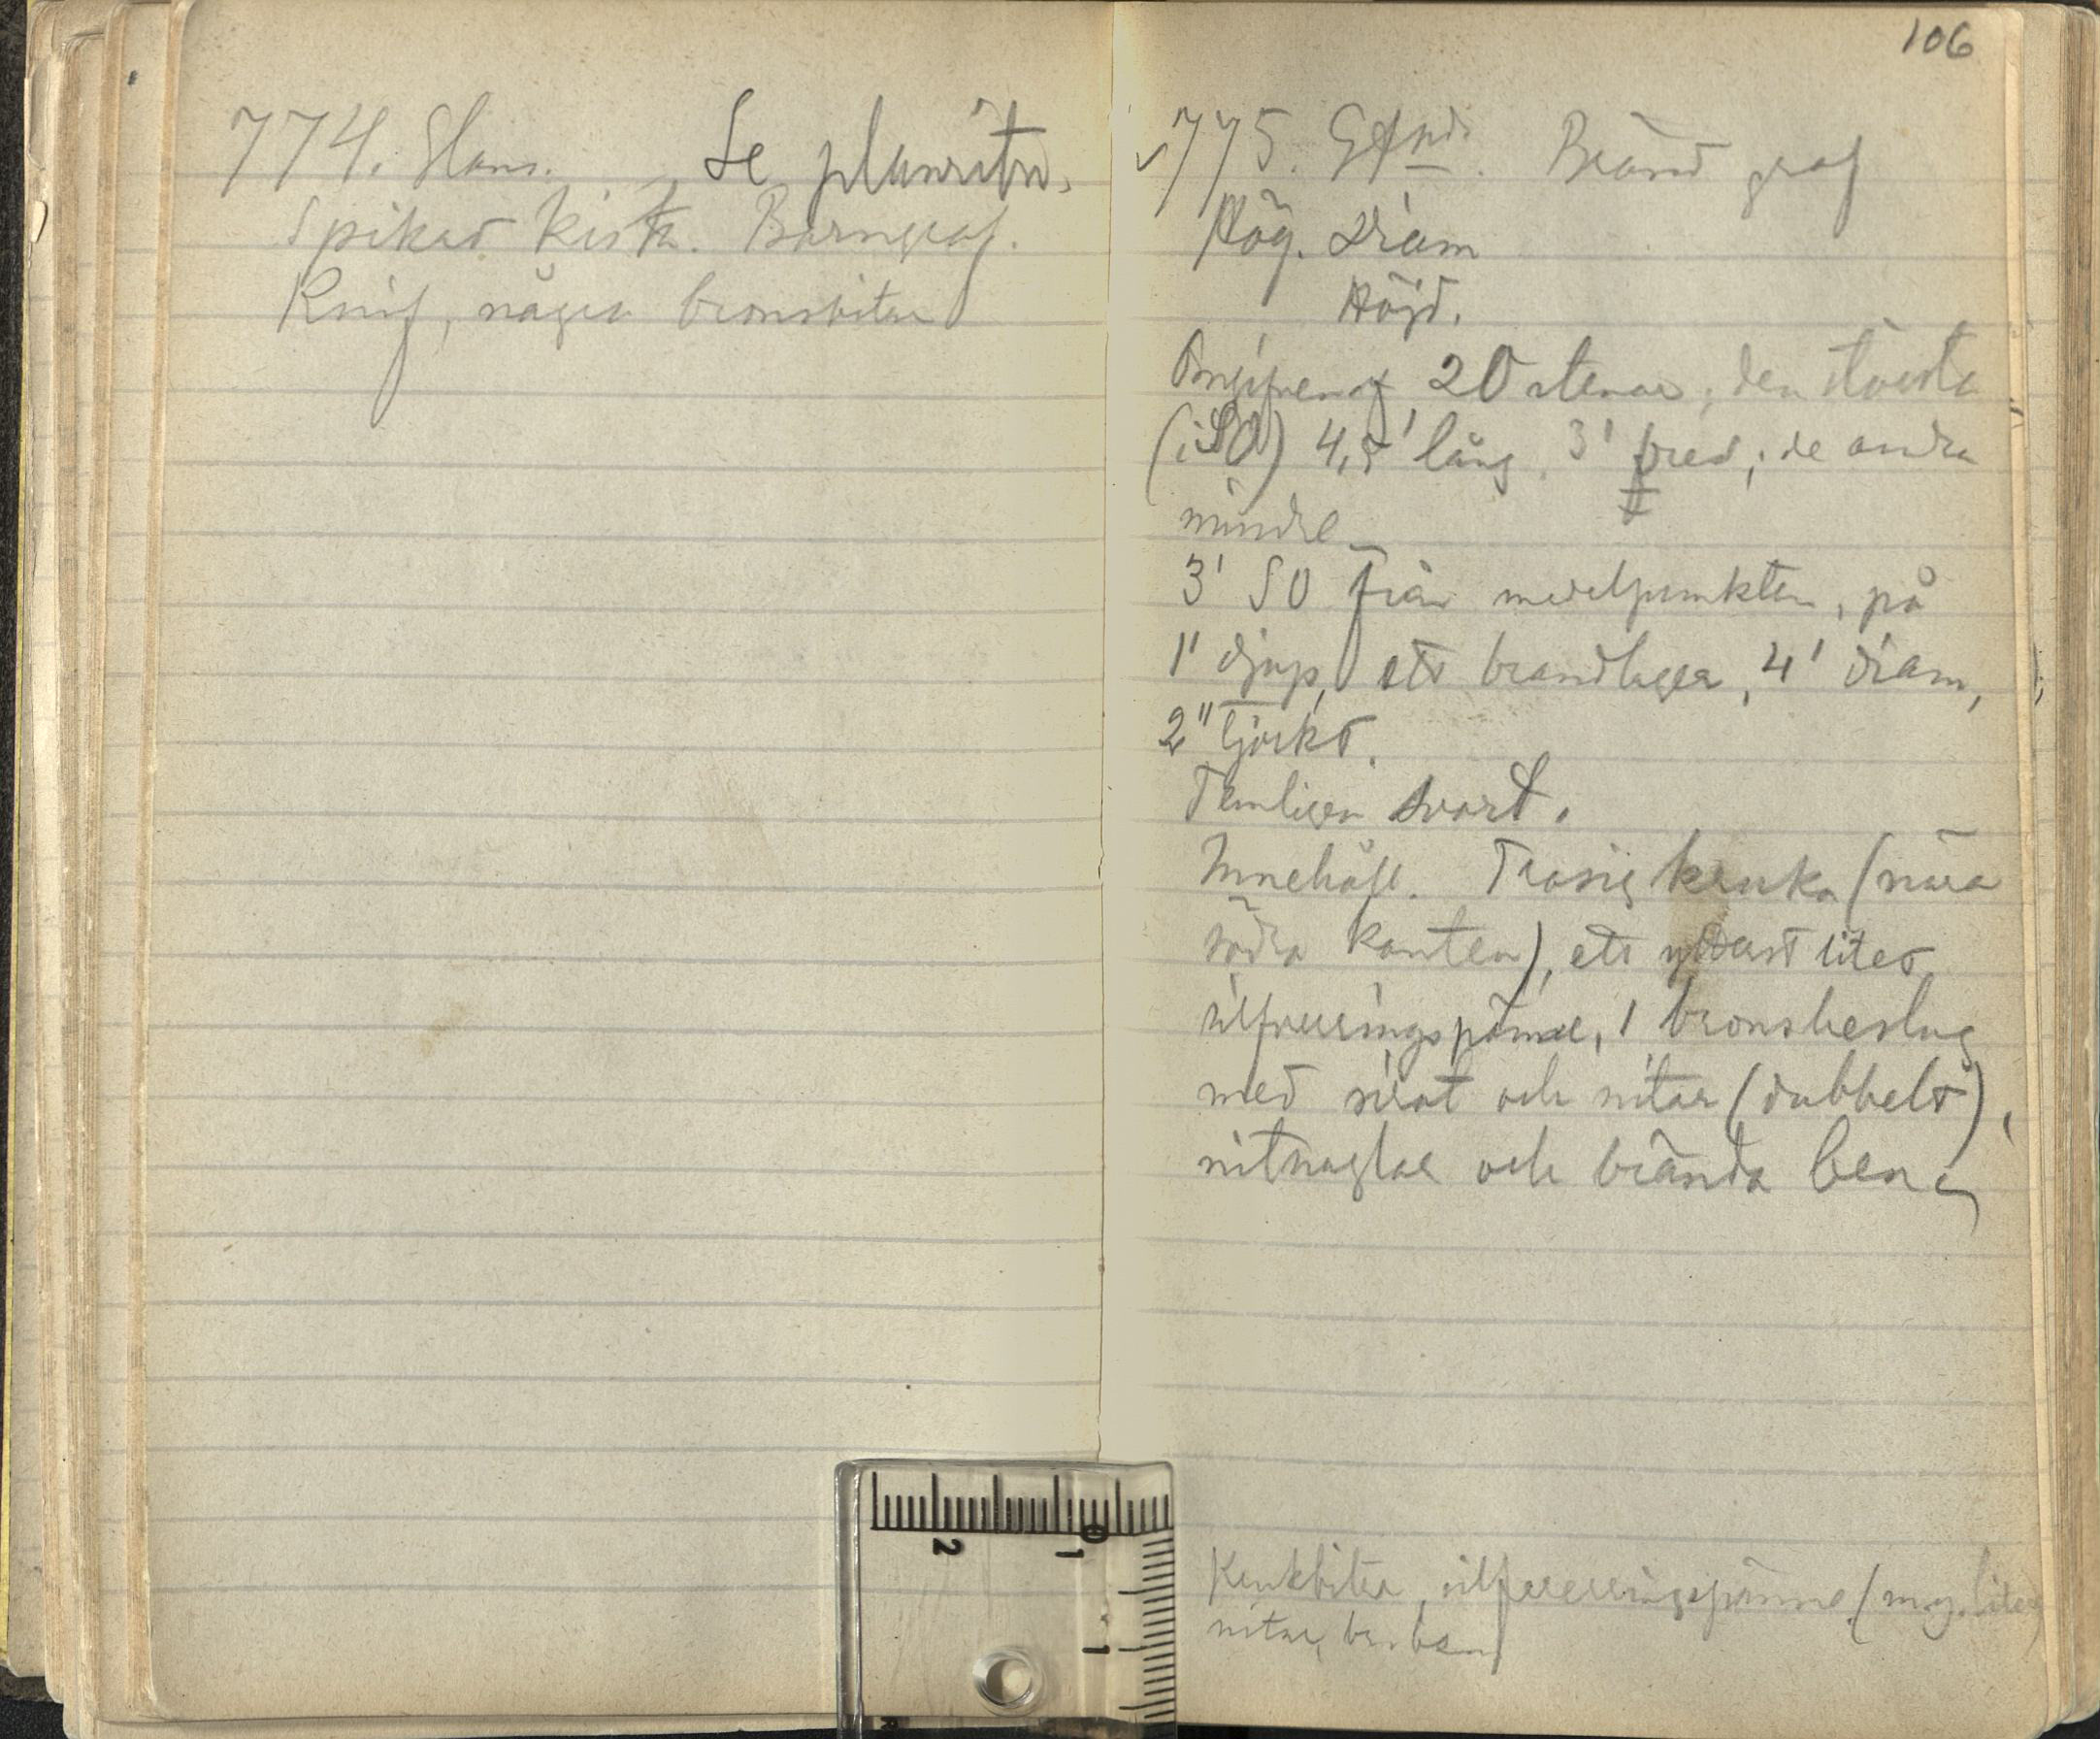 774. Hans. Se planritn.
Spikad kista. Barngraf.
Knif, några bronsbitar
106
775. Brand graf
Hög. Diam
Höjd.
Omgifven af 20 stenar; den största
(i SO) 4,5' lång, 3' bred; de andra
mindre
3' SO från medelpunkten, på
1' djup, ett brandlager, 4' diam,
2" tjockt.
Temligen svart.
Innehåll. Trasig kruka (nära
södra kanten), ett ytterst litet
silfverringspänne, 1 bronsbeslag
med sirat och nitar (dubbelt),
nitnaglar och brända ben
Krukbitar, silfverringspänne (m.y. litet)
nitar, br. ben
2 1 0
1